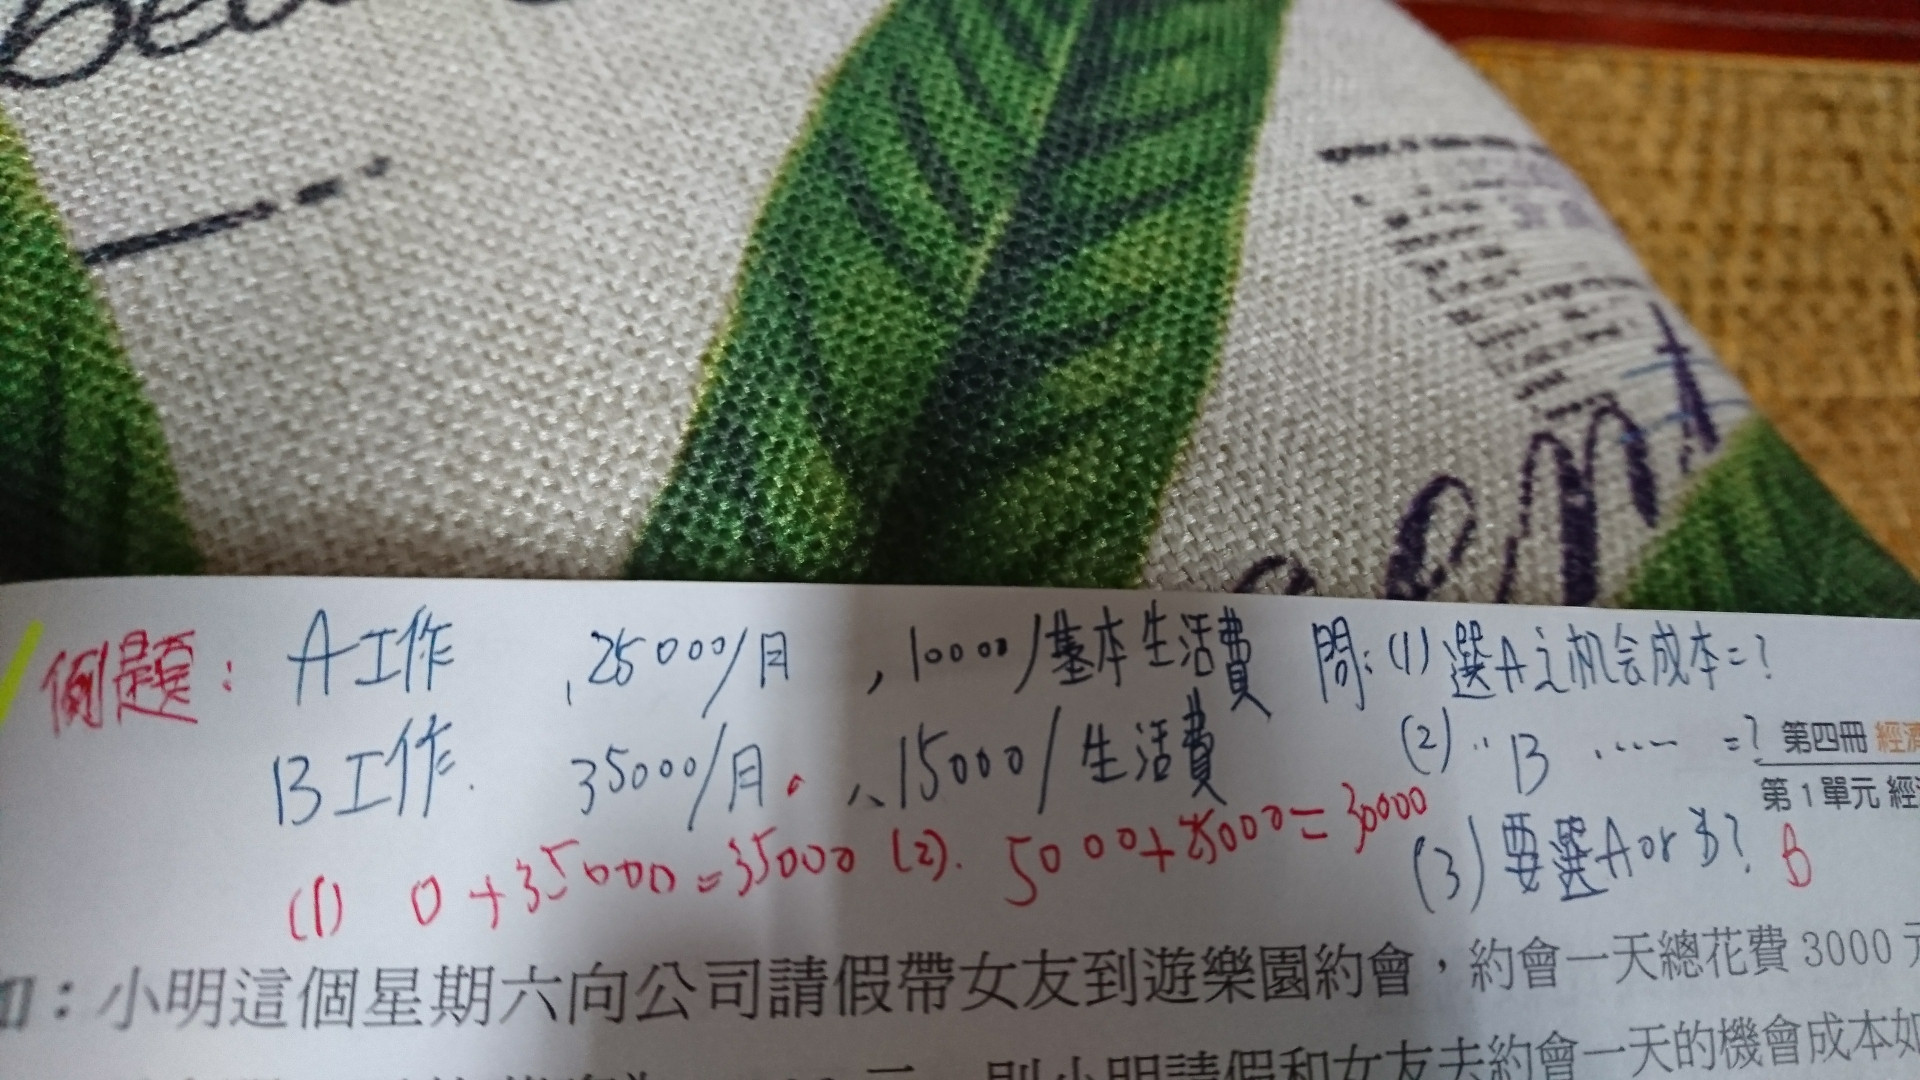 例題: A工作 , 25000/月 , 10000/基本生活費 問:(1) 選A之机会成本=?
B工作. 35000/月. 、15000/生活費 (2) .. B ..... =?
第四冊 經濟
第1單元 經
(3) 要選A or B? B
(1) 0+35000=35000 (2). 5000+25000=30000
:小明這個星期六向公司請假帶女友到遊樂園約會,約會一天總花費3000元
則小明請假和女友去約會一天的機會成本如